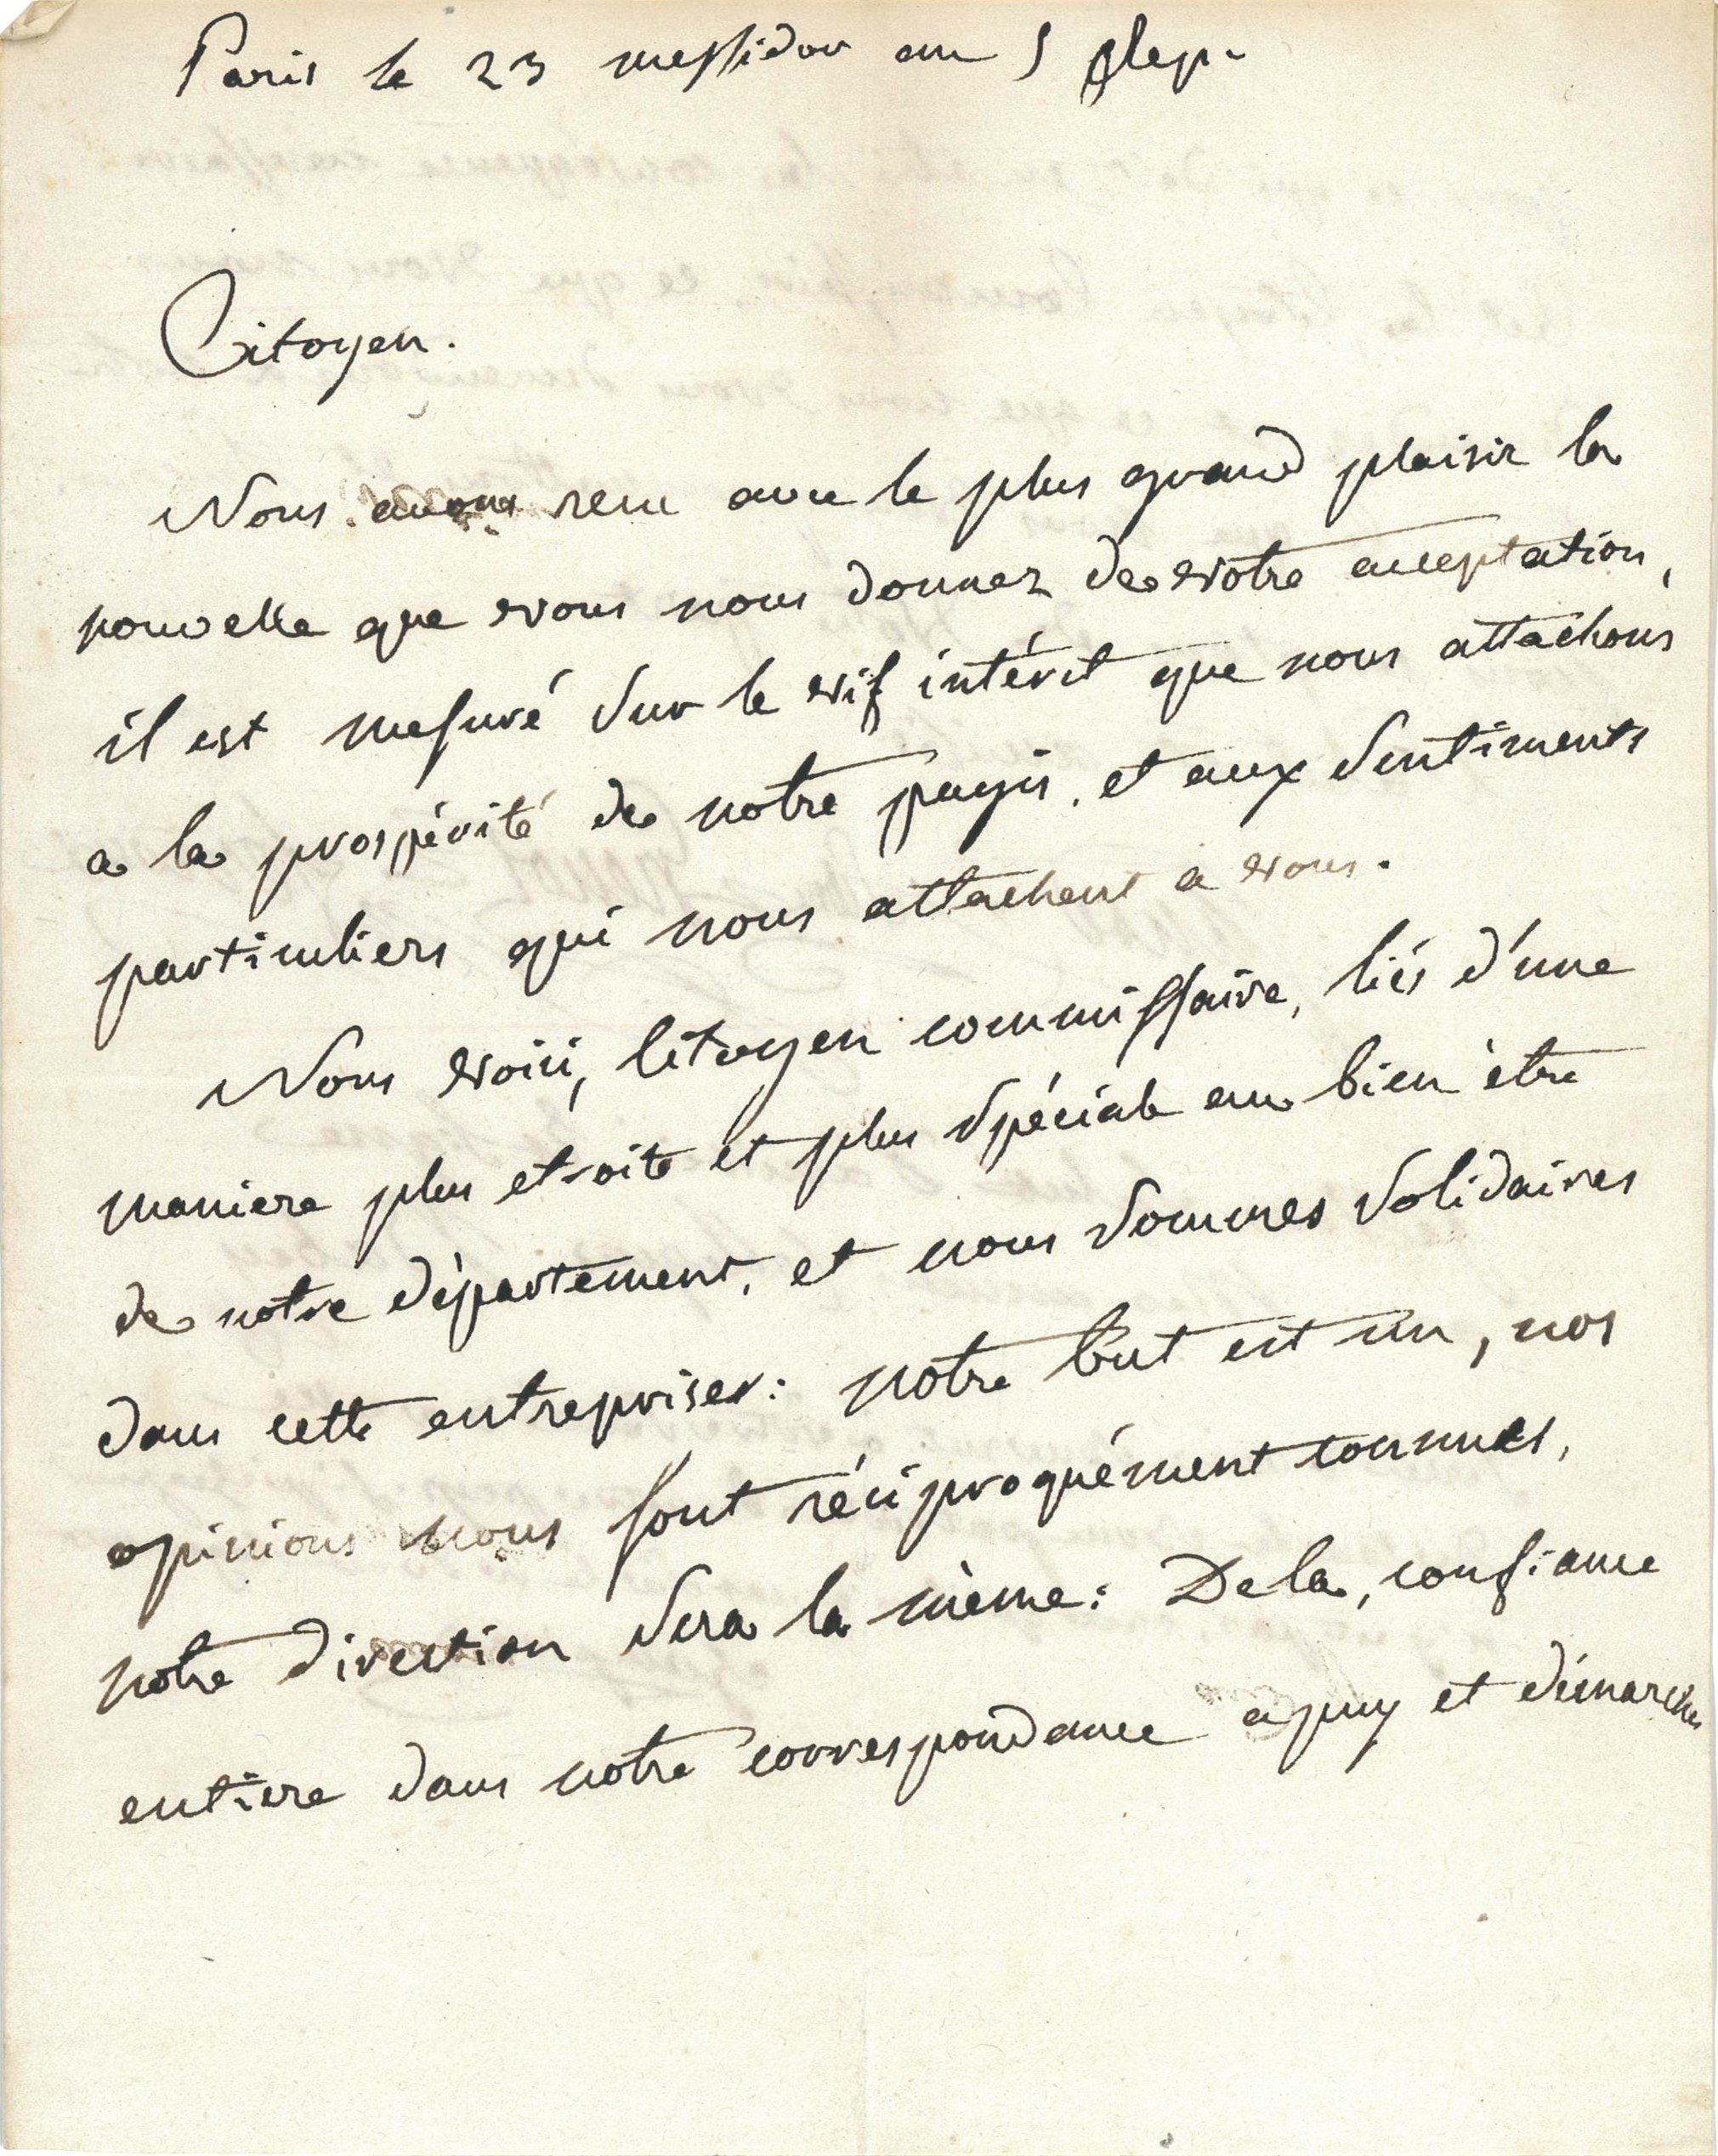 Paris le 23 messidor an 5 Rep.
Citoyen.
Nous avons recu avec le plus grand plaisir la
nouvelle que vous nous donnez de votre acceptation,
il est mesuré sur le vif intérêt que nous attachons
a la prospérité de notre pays, et aux sentiments
particuliers qui nous attachent a vous.
Nous voici, Citoyen commissaire, liés d'une
maniere plus etroite et plus spéciale au bien être
de notre département, et nous sommes solidaires
dans cette entreprise: notre but est un, nos
opinions nous sont réciproquément connues,
notre direction sera la même: De la, confiance
entiere dans notre correspondance apuy et démarches